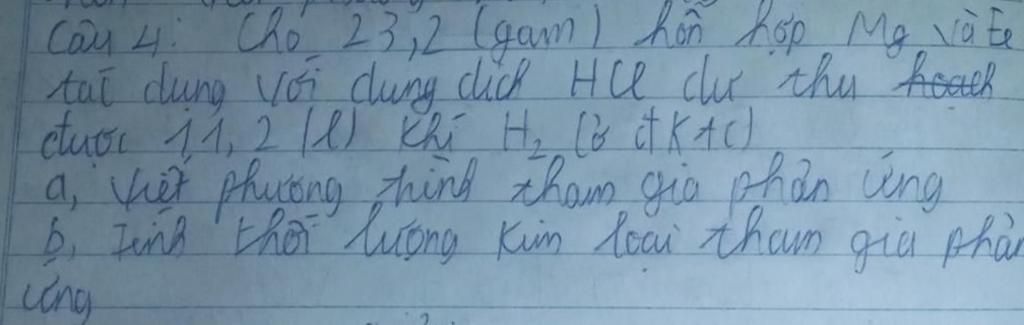 Câu 4: Cho 23,2 (gam) hỗn hợp Mg và Fe
tác dụng với dung dịch HCl dư thu hoach
được 11,2 (l) khí H₂ (ở đktc)
a, viết phương trình tham gia phản ứng
b, Tính khối lượng kim loại tham gia phản
ứng